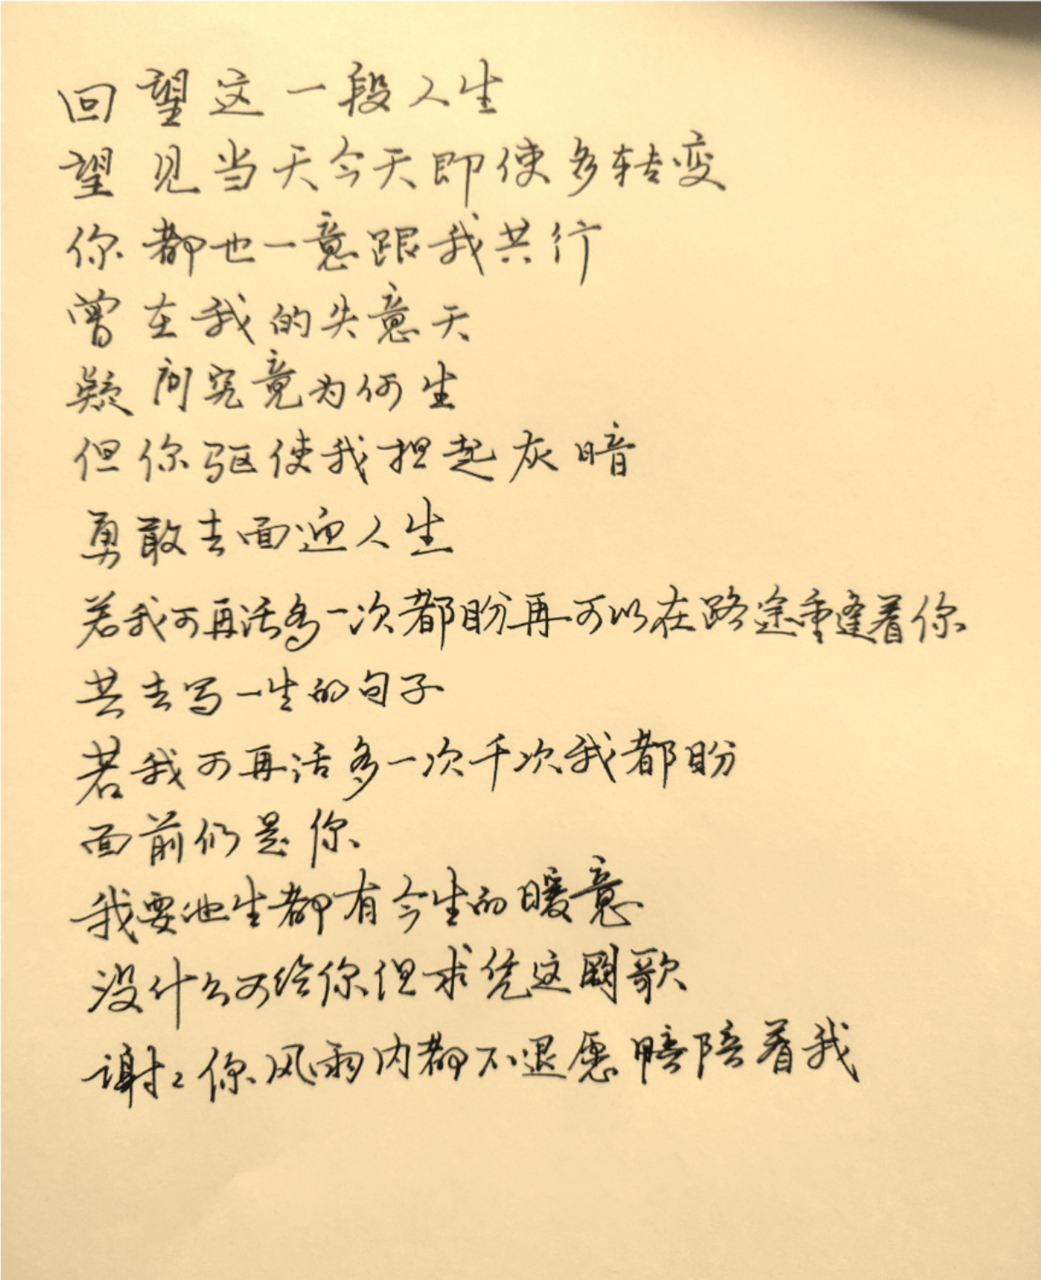 回望这一段人生
望见当天今天即使多转变
你都也一意跟我共行
曾在我的失意天
疑问究竟为何生
但你驱使我担起灰暗
勇敢去面迎人生
若我可再活多一次都盼再可以在路途重逢着你
共去写一生的句子
若我可再活多一次千次我都盼
面前仍是你
我要他生都有今生的暖意
没什么可给你但求凭这阕歌
谢々你风雨内都不退愿陪陪着我